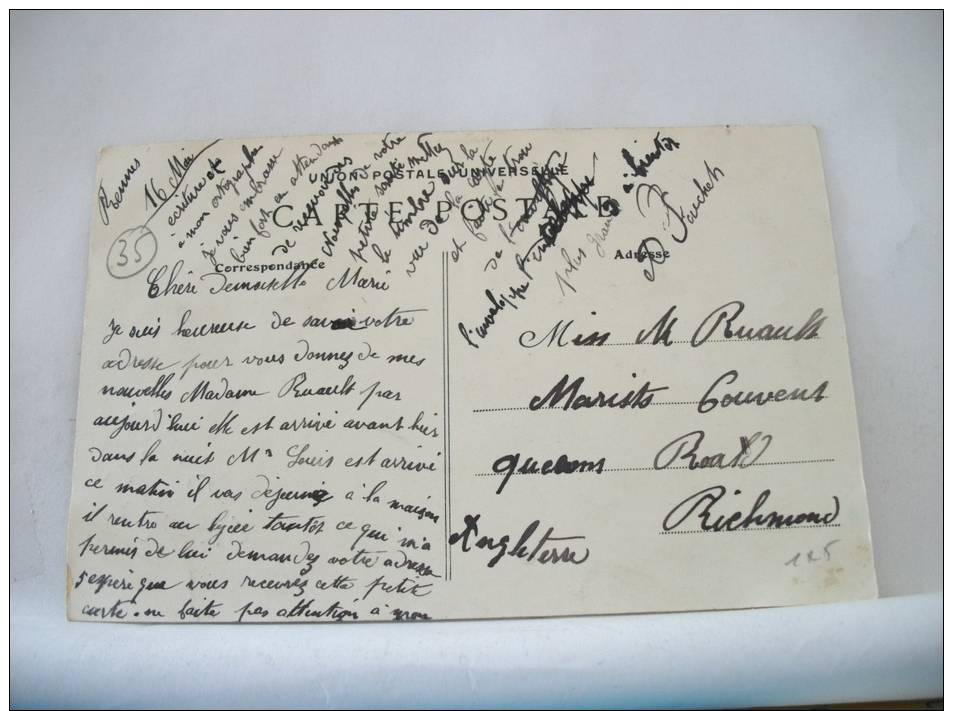 UNION POSTALE UNIVERSELLE
CARTE POSTALE
Correspondance
Adresse
35
Rennes
16 Mai
Chéri Demoiselle Marie
Je suis heureuse de savoir votre
adresse pour vous donnez de mes
nouvelles Madame Ruault par
aujourd'hui elle est arrivé avant hier
dans la nuit Mr Louis est arrivé
ce matin il vas déjeuné à la maison
il rentre au lycée tantôt ce qui m'a
permis de lui demandez votre adresse
j'espére que vous recevrez cette petite
carte. ne faite pas attention à mon
écriture et
à mon ortographe
je vous embrasse
bien fort en attendant
de recevoir des
nouvelles de votre
petite santé mettez
le timbre sur la
vue de la carte
et faite un trou
de l'enveloppe
l'enveloppe
plus grand
à bientôt
Fauchet
Miss M Ruault
Marists Couvent
queens Road
Richmond
Angleterre
125